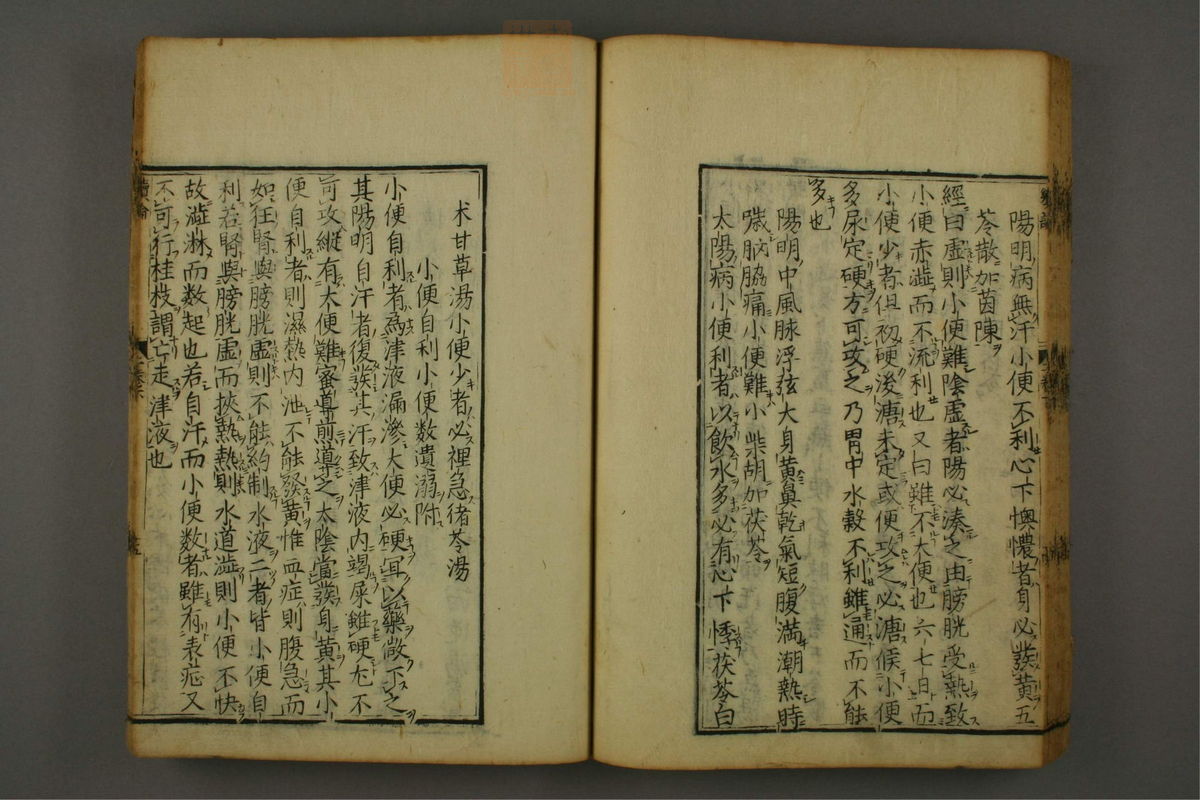 陽明病無汗小便不利心下懊憹者身必發黃五
苓散加茵陳
經曰虛則小便難陰虛者陽必湊之由膀胱受熱致
小便赤澁而不流利也又曰雖不大便也六七日而
小便少者但初硬後溏未定或便攻之必溏候小便
多屎定硬方可攻之乃胃中水穀不利雖通而不能
多也
陽明中風脉浮弦大身黃鼻乾氣短腹滿潮熱時
噦脇痛小便難小柴胡加茯苓
太陽病小便利者以飲水多必有心下悸茯苓白
术甘草湯小便少者必裡急猪苓湯
小便自利小便数遺溺附
小便自利者為津液漏滲大便必硬宜以藥敞下之
其陽明自汗者復發其汗致津液內竭屎雖硬尤不
可攻縱有大便難蜜導前導之太陰當發身黃其小
便自利者則濕熱內泄不能發黃惟血症則腹急而
如狂腎與膀胱虛則不能約制水液二者皆小便自
利若腎與膀胱虛而挾熱熱則水道澁則小便不快
故澁淋而数起也若自汗而小便数者雖有表症又
不可行桂枝謂亡走津液也